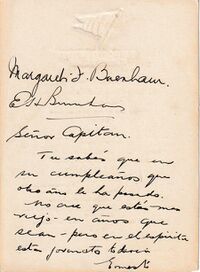 Margaret F. Burnham.
Burnham
Señor Capitan.
Tu sabes que en
su cumpleaños que
otro año le ha pasado.
No que estés mas
viejo - en años que
sean - pero en el espiritu
esta jovencito todavia
Ernest